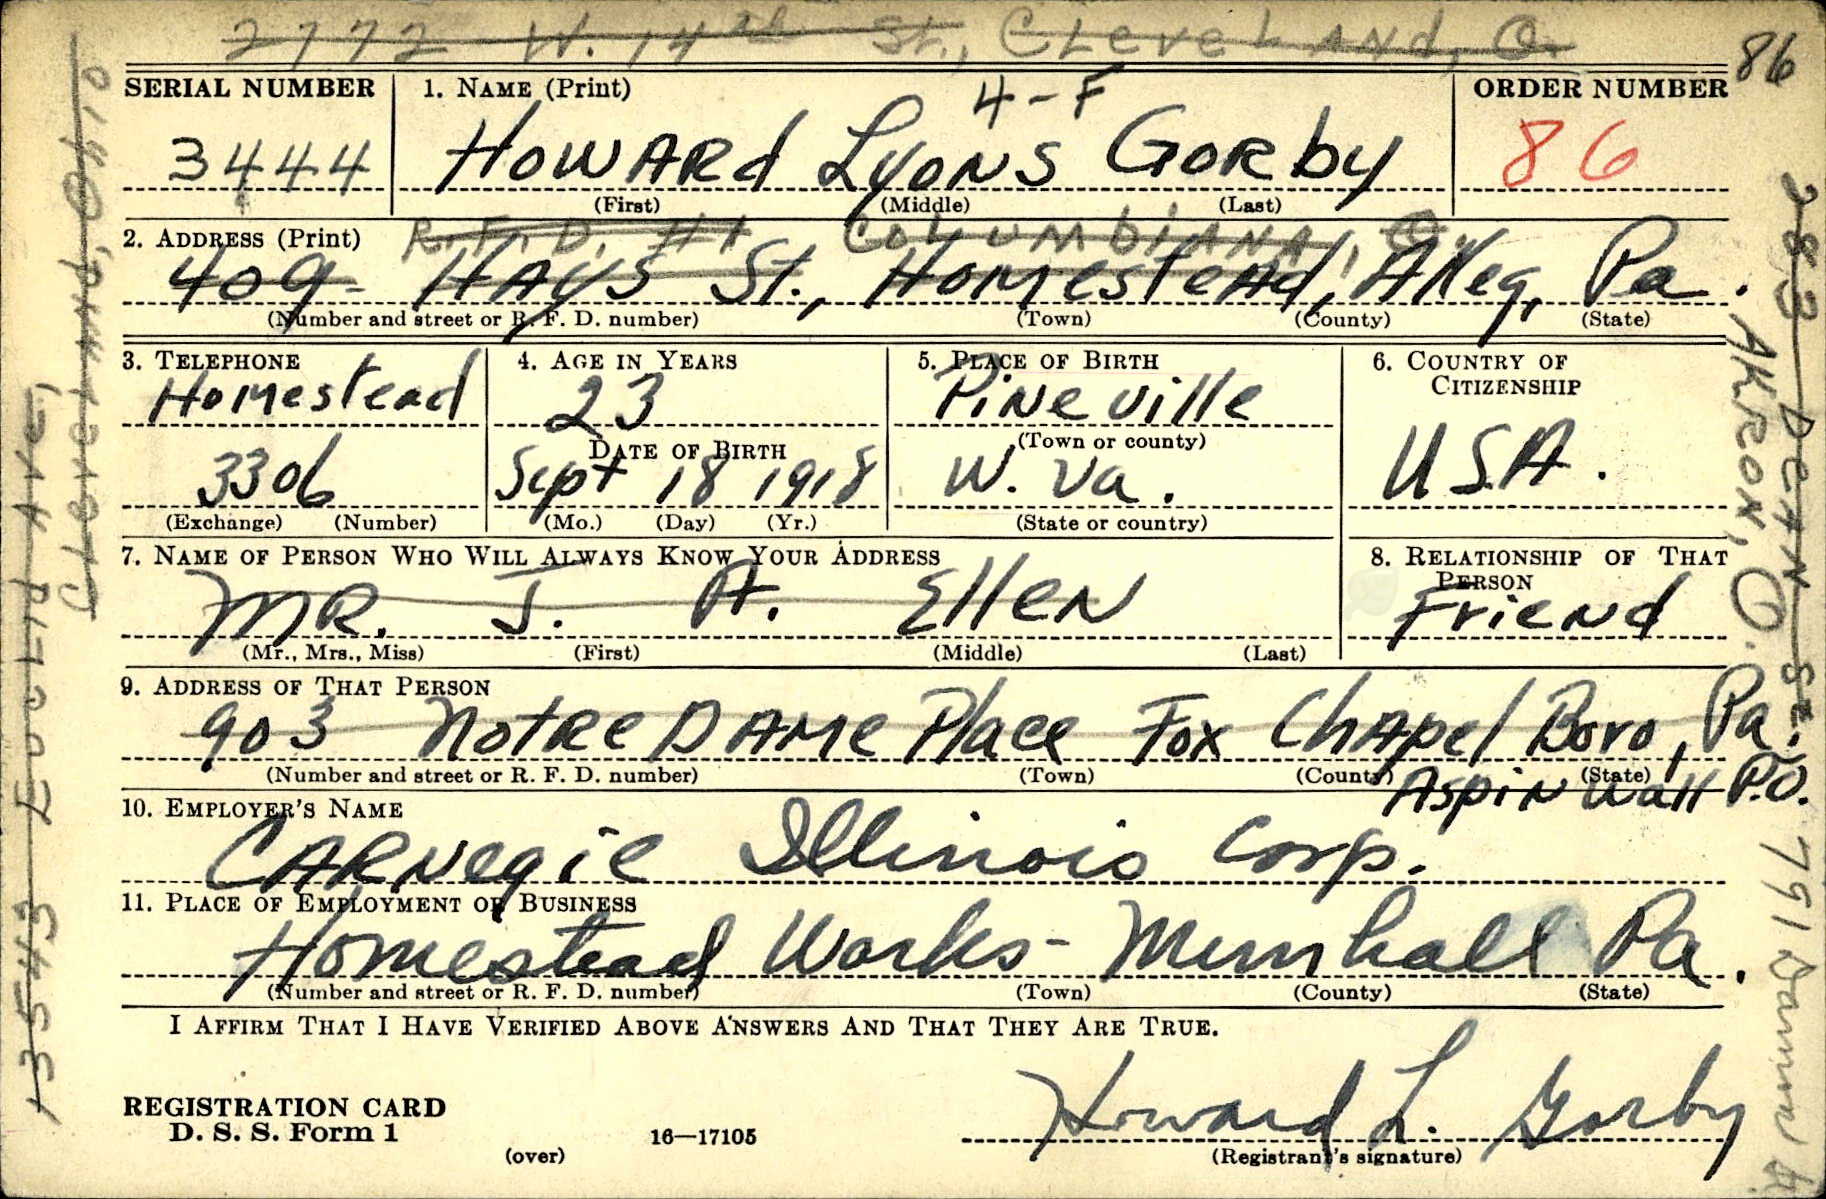 2772 W. 14th St., Cleveland, O.
86
SERIAL NUMBER
1. NAME (Print)
4-F
ORDER NUMBER
3444
Howard Lyons Gorby
86
(First) (Middle) (Last)
2. ADDRESS (Print)
R.F.D. #1 Columbiana, O.
409 Hays St., Homestead, Alleg, Pa.
(Number and street or R. F. D. number) (Town) (County) (State)
3. TELEPHONE
4. AGE IN YEARS
5. PLACE OF BIRTH
6. COUNTRY OF CITIZENSHIP
Homestead
23
Pineville
DATE OF BIRTH
(Town or county)
3306
Sept 18 1918
W. Va.
USA.
(Exchange) (Number)
(Mo.) (Day) (Yr.)
(State or country)
7. NAME OF PERSON WHO WILL ALWAYS KNOW YOUR ADDRESS
8. RELATIONSHIP OF THAT PERSON
MR. J. A. Ellen
Friend
(Mr., Mrs., Miss) (First) (Middle) (Last)
9. ADDRESS OF THAT PERSON
903 Notre Dame Place Fox Chapel Boro, Pa.
(Number and street or R. F. D. number) (Town) (County) (State)
Aspinwall P.O.
10. EMPLOYER'S NAME
Carnegie Illinois Corp.
11. PLACE OF EMPLOYMENT OR BUSINESS
Homestead Works - Munhall Pa.
(Number and street or R. F. D. number) (Town) (County) (State)
I AFFIRM THAT I HAVE VERIFIED ABOVE ANSWERS AND THAT THEY ARE TRUE.
REGISTRATION CARD
D. S. S. Form 1
(over)
16—17105
Howard L. Gorby
(Registrant's signature)
13543 Ave.
Cleveland, Ohio
283 Dean St.
Akron, O.
791